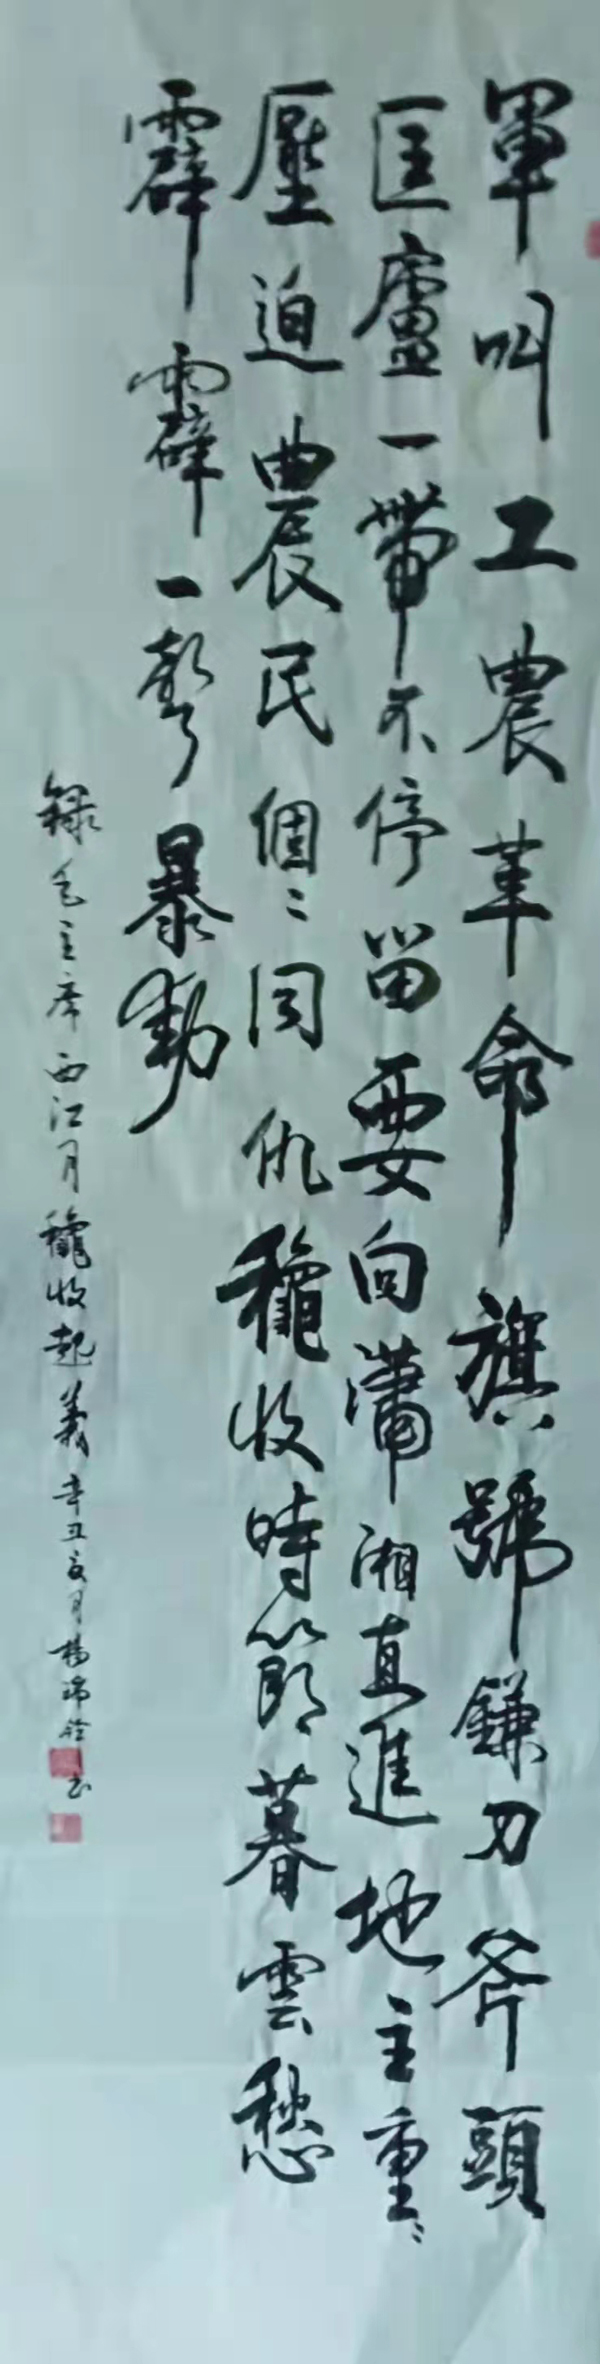 軍叫工農革命旗號鎌刀斧頭
匡廬一帶不停留要向瀟湘直進地主重〻
壓迫農民個〻同仇穐收時節暮雲愁
霹霹一聲暴動
錄毛主席西江月穐收起義辛丑月楊瑞书